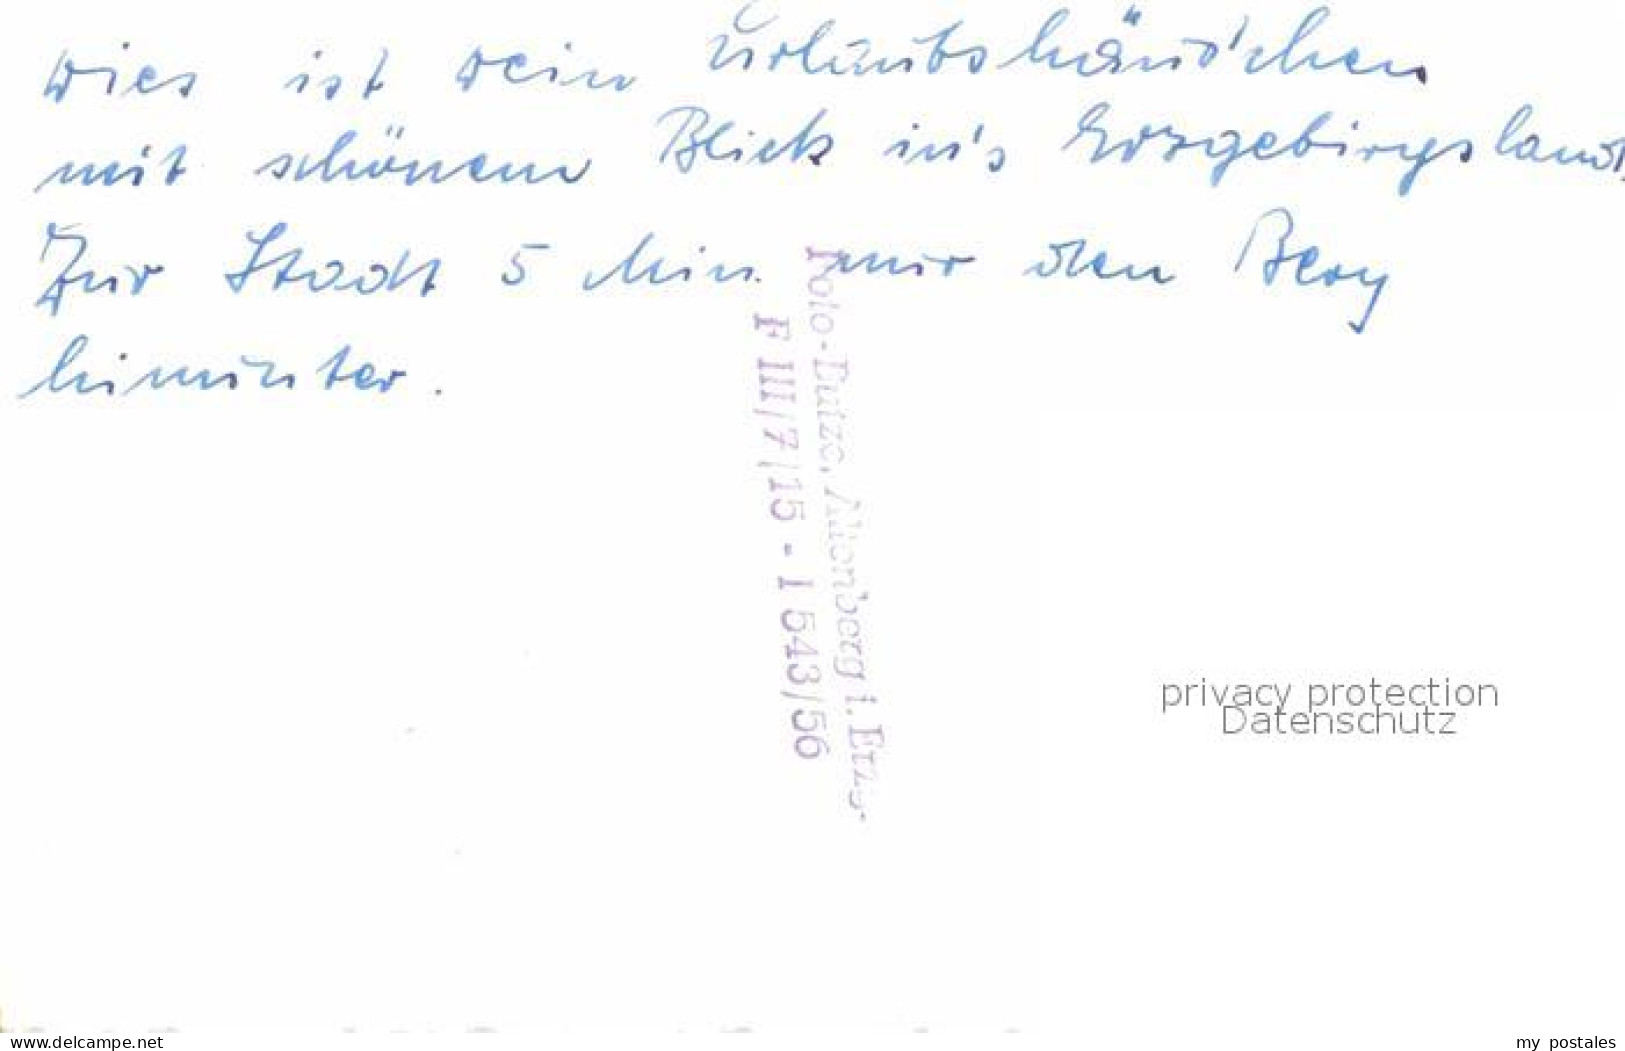 Dies ist Dein Urlaubshäus'chen
mit schönem Blick in's Erzgebirgsland.
Zur Stadt 5 Min. nur den Berg
hinunter.
Foto-Dutze, Altenberg i. Erzg.
F III/7/15 - I 543/56
privacy protection
Datenschutz
www.delcampe.net
my_postales